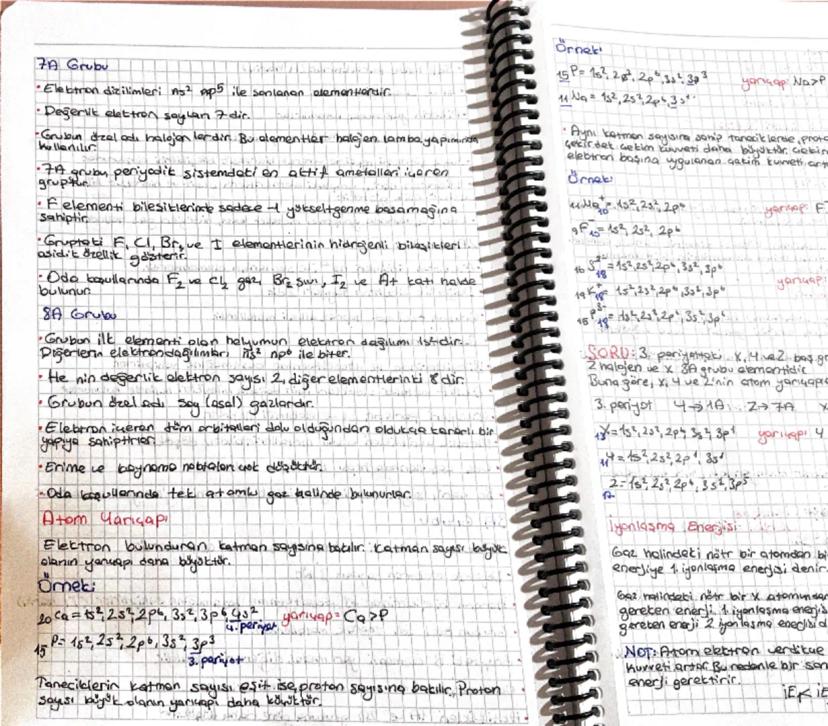 7A Grubu
• Elektron dizilimleri ns² np⁵ ile sonlanan elementlerdir.
• Değerlik elektron sayıları 7 dir.
• Grubun özel adı halojenlerdir. Bu elementler halojen lamba yapımında
kullanılır.
• 7A grubu periyodik sistemdeki en aktif ametalleri içeren
gruptur.
• F elementi bileşiklerinde sadece -1 yükseltgenme basamağına
sahiptir.
• Gruptaki F, Cl, Br ve I elementlerinin hidrojenli bileşikleri
asidik özellik gösterir.
• Oda koşullarında F₂ ve Cl₂ gaz, Br₂ sıvı, I₂ ve At katı halde
bulunur.
8A Grubu
• Grubun ilk elementi olan helyumun elektron dağılımı 1s² dir.
Diğerlerin elektron dağılımları ns² np⁶ ile biter.
• He nin değerlik elektron sayısı 2, diğer elementlerinki 8 dir.
• Grubun özel adı soy (asal) gazlardır.
• Elektron içeren tüm orbitalleri dolu olduğundan oldukça kararlı bir
yapıya sahiptirler.
• Erime ve kaynama noktaları çok düşüktür.
• Oda koşullarında tek atomlu gaz halinde bulunurlar.
Atom Yarıçapı
Elektron bulunduran katman sayısına bakılır. Katman sayısı büyük
olanın yarıçapı daha büyüktür.
Örnek:
₂₀Ca = 1s², 2s², 2p⁶, 3s², 3p⁶, 4s² yarıçap = Ca > P
4. periyot
₁₅P = 1s², 2s², 2p⁶, 3s², 3p³
3. periyot
Taneciklerin katman sayısı eşit ise, proton sayısına bakılır. Proton
sayısı büyük olanın yarıçapı daha küçüktür.
Örnek:
₁₅P = 1s², 2s², 2p⁶, 3s², 3p³ yarıçap: Na > P
₁₁Na = 1s², 2s², 2p⁶, 3s¹
• Aynı katman sayısına sahip taneciklerde, proto
çekirdek çekim kuvveti daha büyüktür.
elektron başına uygulanan çekim kuvveti art
Örnek:
₁₁Na⁺₁₀ = 1s², 2s², 2p⁶ yarıçap: F
₉F₁₀ = 1s², 2s², 2p⁶
₁₆S²⁻₁₈ = 1s², 2s², 2p⁶, 3s², 3p⁶ yarıçap:
₁₉K⁺₁₈ = 1s², 2s², 2p⁶, 3s², 3p⁶
₁₅P³⁻₁₈ = 1s², 2s², 2p⁶, 3s², 3p⁶
SORU: 3. periyottaki X, Y ve Z baş gr
Z halojen ve X 3A grubu elementidir.
Buna göre, X, Y ve Z'nin atom yarıçapla
3. periyot Y → 1A Z → 7A X
₁₃X = 1s², 2s², 2p⁶, 3s², 3p¹ yarıçap: Y
₁₁Y = 1s², 2s², 2p⁶, 3s¹
₁₇Z = 1s², 2s², 2p⁶, 3s², 3p⁵
İyonlaşma Enerjisi
Gaz halindeki nötr bir atomdan bi
enerjiye 1. iyonlaşma enerjisi denir.
Gaz halindeki nötr bir X atomundan
gereken enerji 1. iyonlaşma enerjis
gereken enerji 2. iyonlaşma enerjisid
NOT: Atom elektron verdikçe
kuvveti artar. Bu nedenle bir son
enerji gerektirir.
İE₁ < İE